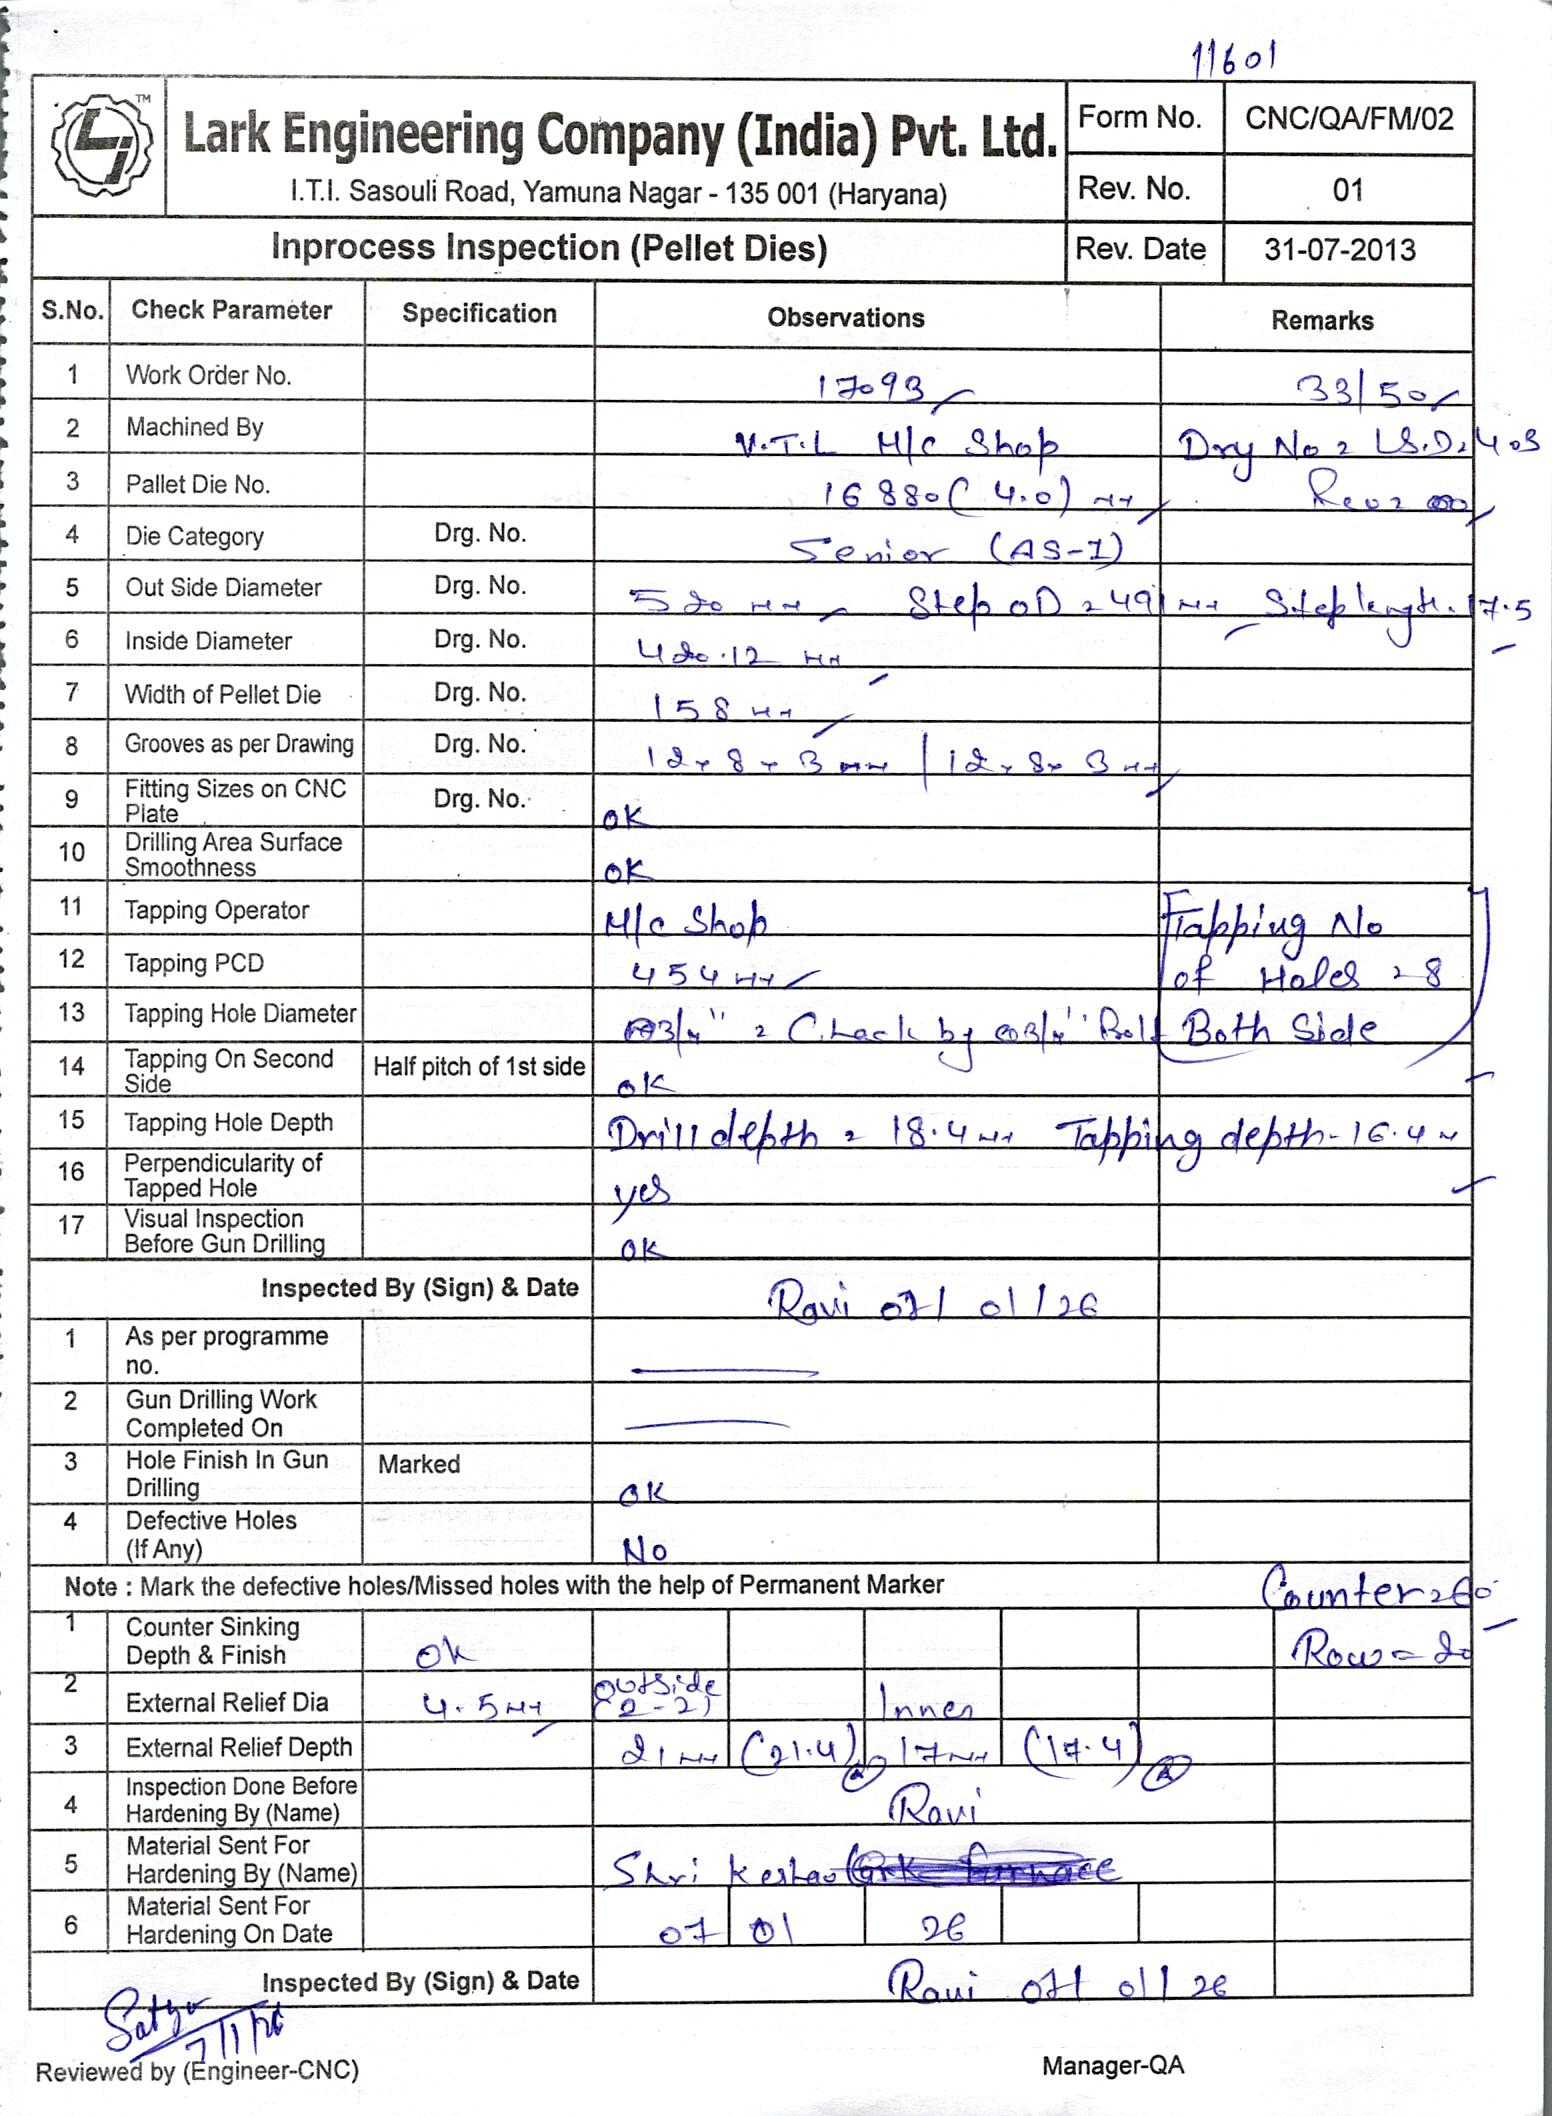 11601
LJ TM
Lark Engineering Company (India) Pvt. Ltd.
I.T.I. Sasouli Road, Yamuna Nagar - 135 001 (Haryana)
Form No. CNC/QA/FM/02
Rev. No. 01
Inprocess Inspection (Pellet Dies) Rev. Date 31-07-2013
S.No. Check Parameter Specification Observations Remarks
1 Work Order No. 17093 33/50
2 Machined By V.T.L M/C Shop Drg No = LS.D.403
3 Pallet Die No. 16880 (4.0) mm Rev = 00
4 Die Category Drg. No. Senior (AS-1)
5 Out Side Diameter Drg. No. 520 mm Step OD = 491 mm Step length. 17.5
6 Inside Diameter Drg. No. 420.12 mm
7 Width of Pellet Die Drg. No. 158 mm
8 Grooves as per Drawing Drg. No. 12 x 8 x 3 mm | 12 x 8 x 3 mm
9 Fitting Sizes on CNC Plate Drg. No. OK
10 Drilling Area Surface Smoothness OK
11 Tapping Operator M/C Shop Tapping No
12 Tapping PCD 454 mm of Holes = 8
13 Tapping Hole Diameter 3/4" = Check by 3/4" Bolt Both Side
14 Tapping On Second Side Half pitch of 1st side OK
15 Tapping Hole Depth Drill depth = 18.4 mm Tapping depth - 16.4 m
16 Perpendicularity of Tapped Hole yes
17 Visual Inspection Before Gun Drilling OK
Inspected By (Sign) & Date Ravi 07/01/26
1 As per programme no.
2 Gun Drilling Work Completed On
3 Hole Finish In Gun Drilling Marked OK
4 Defective Holes (If Any) No
Note : Mark the defective holes/Missed holes with the help of Permanent Marker Counter = 60
1 Counter Sinking Depth & Finish Ok Row = 20
2 External Relief Dia 4.5 mm Outside (2-2) Inner
3 External Relief Depth 21 mm (21.4) 17 mm (17.4)
4 Inspection Done Before Hardening By (Name) Ravi
5 Material Sent For Hardening By (Name) Shri Keshav
6 Material Sent For Hardening On Date 07 01 26
Inspected By (Sign) & Date Ravi 07/01/26
7/1/26
Reviewed by (Engineer-CNC) Manager-QA